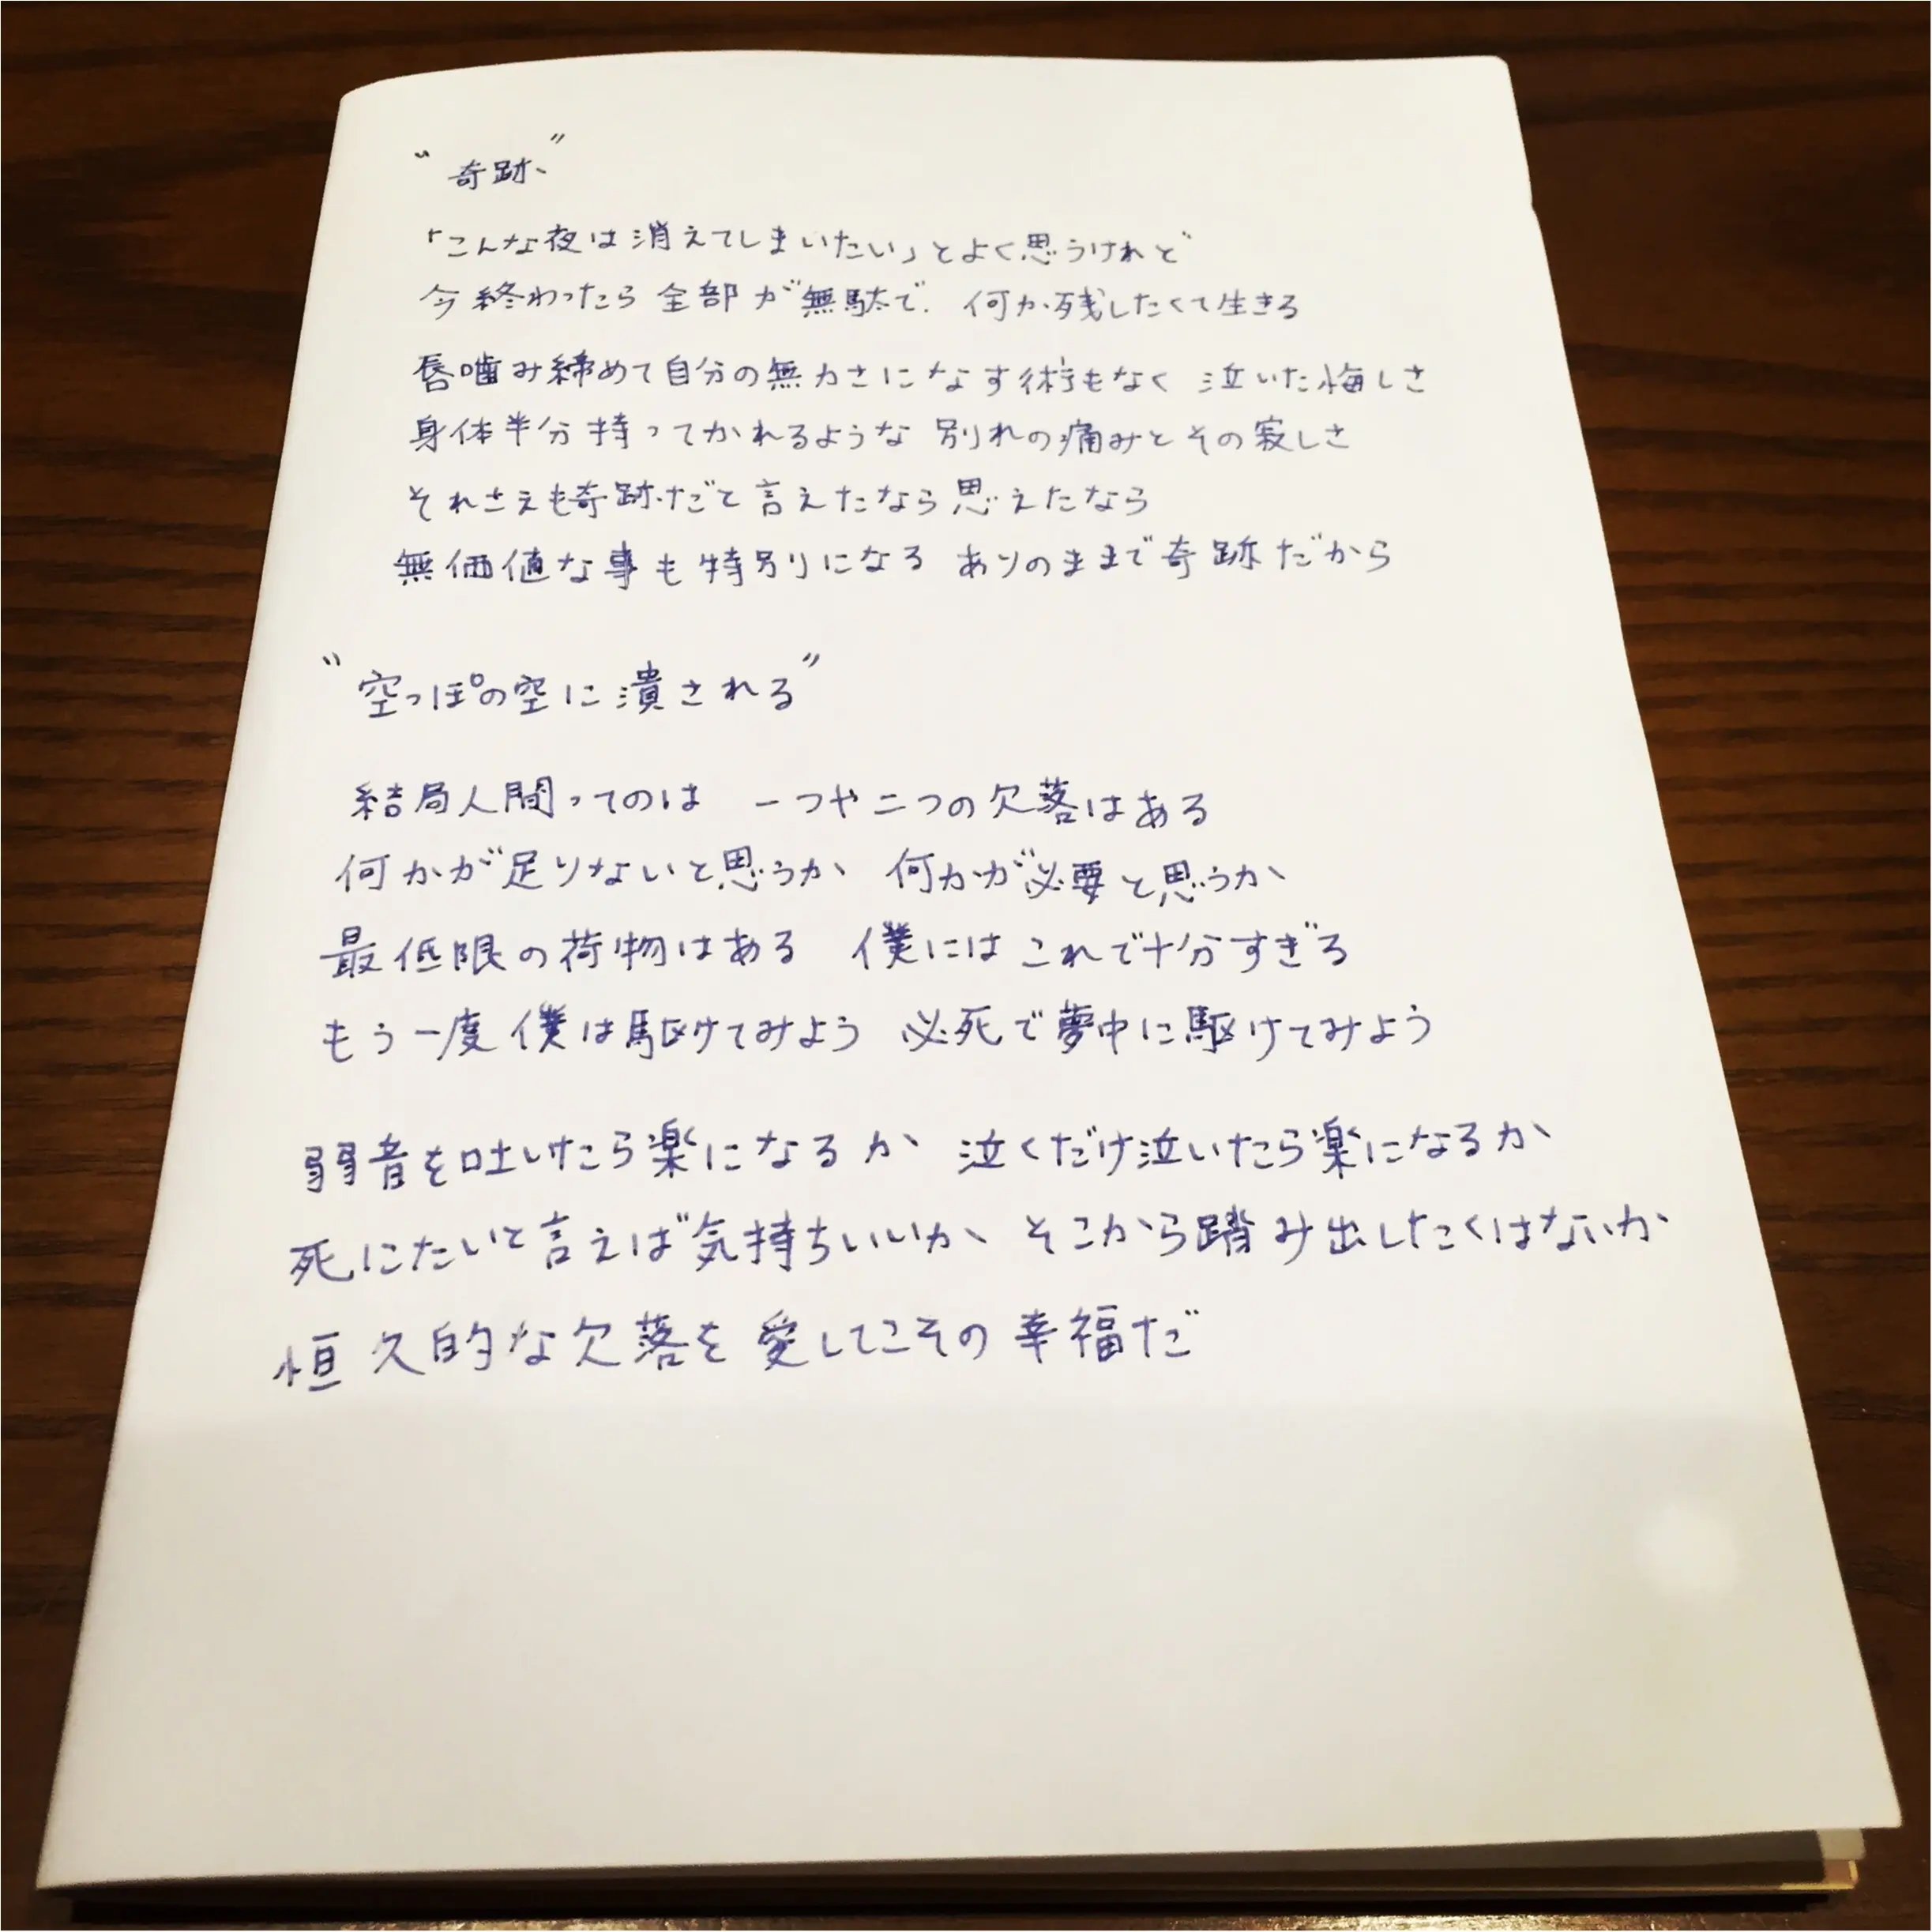 "奇跡"
「こんな夜は消えてしまいたい」とよく思うけれど
今終わったら 全部が無駄で、何か残したくて生きる
唇噛み締めて自分の無力さになす術もなく 泣いた悔しさ
身体半分持ってかれるような 別れの痛みとその寂しさ
それさえも奇跡だと言えたなら思えたなら
無価値な事も特別になる ありのままで奇跡だから
"空っぽの空に潰される"
結局人間ってのは 一つや二つの欠落はある
何かが足りないと思うか 何かが必要と思うか
最低限の荷物はある 僕にはこれで十分すぎる
もう一度僕は駆けてみよう 必死で夢中に駆けてみよう
弱音を吐いたら楽になるか 泣くだけ泣いたら楽になるか
死にたいと言えば気持ちいいか そこから踏み出したくはないか
恒久的な欠落を愛してこその幸福だ